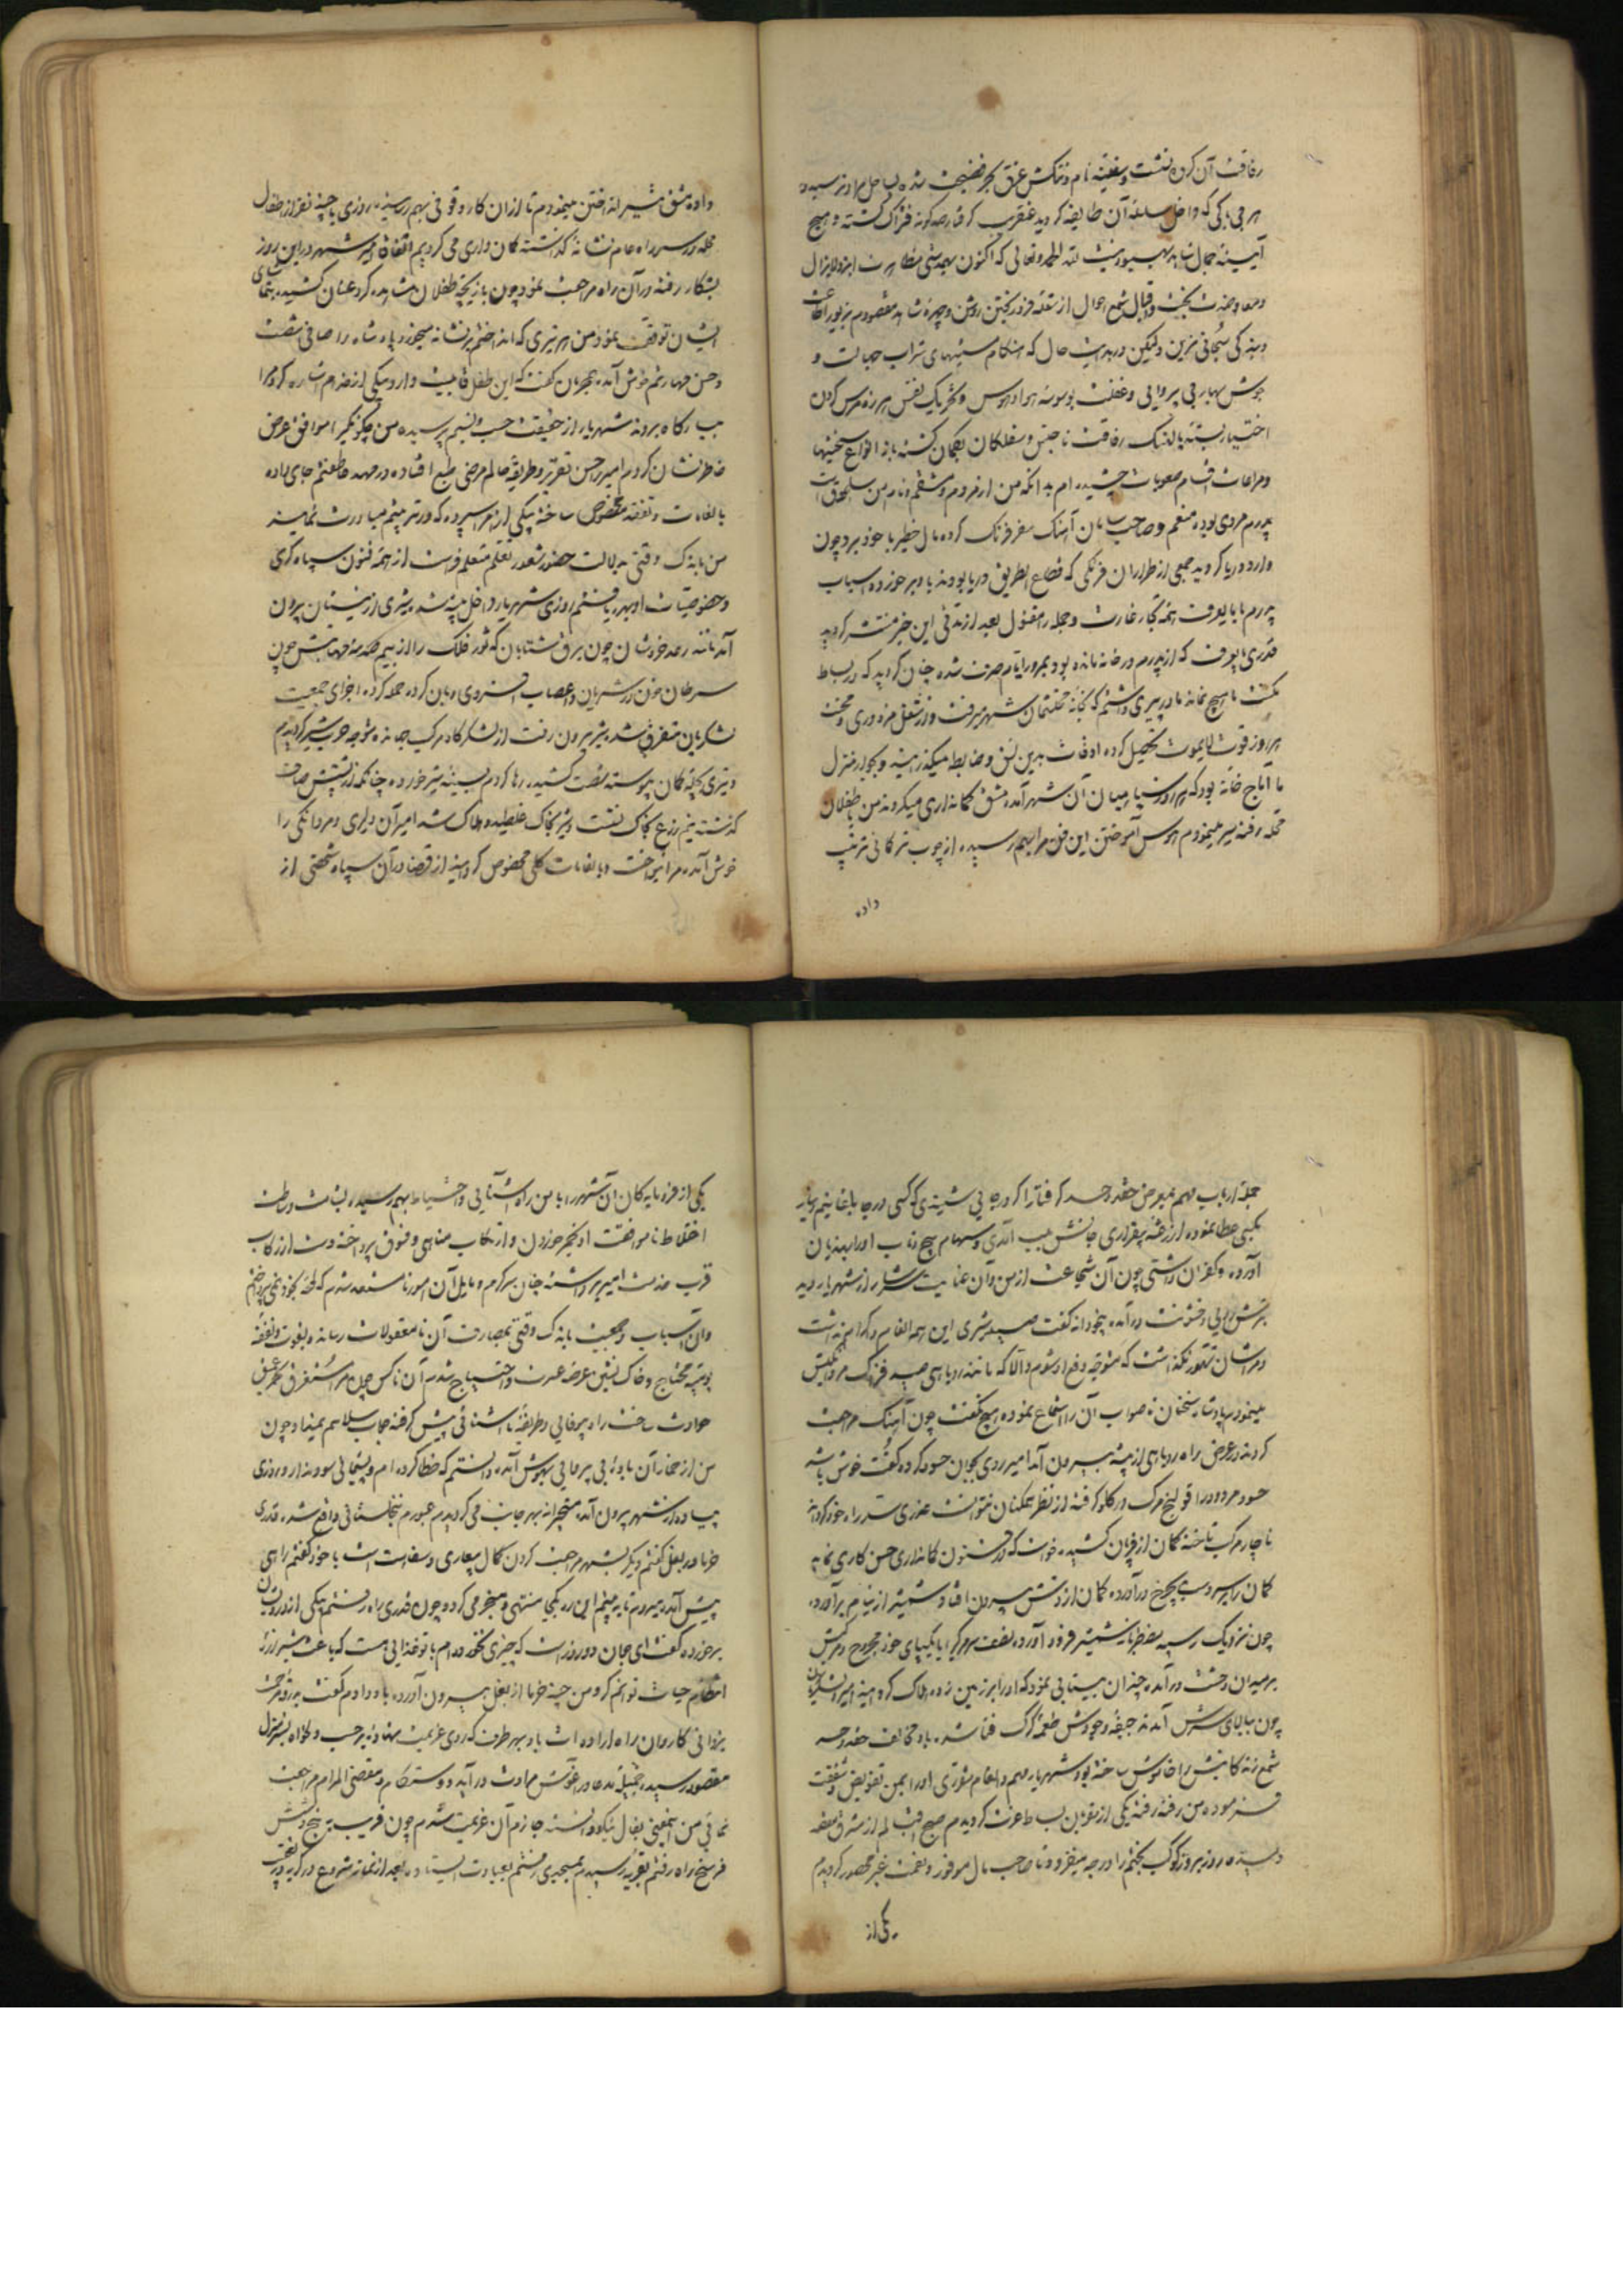 رفاقت آن کرده نشست و سفینه نام و ننگش غرق بحر فضیحت شده بساحل مراد نرسیده
هر بی باکی که داخل سلسله آن طایفه گردید عنقریب گرفتار صدگونه فتراک گشته و هیچ
آیینه جمال شاهد بهبود ندید لله الحمد و تعالی که اکنون
و معاضدت بخت و اقبال شمع احوال از شعله فروز بختن روشن و چهره شاهد مقصودم بزیور
و بندگی سبحانی مزین ولیکن در بدایت حال که هنگام مستیهای شراب جهالت و
جوش بهار بی پروایی و غفلت بوسوسه هوا و هوس و تحریک نفس هرزه مرس گردن
اختیار بسته پالهنگ رفاقت ناجنس و سفلگان یکجهان گشته باز انواع سختیها
و مراعات اقسام صعوبات چشیده ام بدانکه من از مردم دمشقم و نام من
پدرم مردی بوده منعم و صاحب سامان آهنگ سفر فرنگ کرده مال خطیر با خود برد چون
وارد دریا گردید جمعی از طراران فرنگی که قطاع الطریق دریا بودند باو برخورده اسباب
پدرم با مایعرف همه تجار غارت و جمله را مقتول بعد از مدتی این خبر منتشر گردید
قدری مایعرف که از پدرم در خانه مانده بود بمرور ایام صرف شده چنان گردید که در بساط
مکنت ما هیچ نماند مادر پیری داشتم که بخانه محتشمان شهر میرفت و از شغل مزدوری و محنت
هر روز قوت لایموت تحصیل کرده اوقات بدین نسق و ضابطه میگذرانید و بجوار منزل
ما آماج خانه بود که هر روز سپاهیان آن شهر آمده مشق کمانداری میکردند من با طفلان
محله رفته سیر مینمودم هوس آموختن این فن مرا بهم رسیده از چوب تر کمانی ترتیب
داده
داده مشق تیر انداختن مینمودم تا از آن کار وقوفی بهم رسید روزی با چند نفر از طفل
محله در سر راه عام نشانه گذاشته کمانداری می کردیم اتفاقا امیر شهر در این روز
بشکار رفته در آن راه مراجعت نمود چون بازیچه طفلان مشاهده کرد عنان کشیده بتماشای
ایشان توقف نمود من هر تیری که انداختم بر نشانه میخورد پادشاه را صافی شست
و حسن مهارتم خوش آمده بهمرهان گفت که این طفل قابلیت دارد و بیکی از خدام اشاره کرد مرا
ببارگاه بردند شهریار از حقیقت حسب و نسبم پرسیده من چگونگی را موافق عرض
خاطر نشان کردم امیر را حسن تقریر و طریقه حالم مرضی طبع افتاده در مهد عاطفتم جای داده
بالغات و تفقد مخصوص ساخته بیکی از امرا سپرد که در تربیتم مبادرت نماید
من باندک وقتی بدلالت حضور شعور تعلم متعلم فراست از همه فنون سپاه گری
و خصوصیات او بهره یافتم روزی شهریار داخل بیشه شد شیری از نیستان بیرون
آمد مانند رعد خروشان و چون برق شتابان که ثور فلک را از بیم صدمه مهابتش چون
سرطان خون در شریان و اعصاب افسردی دهان کرده حمله کرد اجزای جمعیت
لشکریان متفرق شد شیر بیرون رفت از لشکرگاه مرکب جهانده متوجه حرب شیر گردیدم
و تیری بچله کمان پیوسته شست کشیده رها کردم بسینه شیر خورده چنانکه از پشتش صاف
گذشته نیم زرع بخاک نشست و شیر بخاک غلطیده هلاک شد امیر آن دلیری و مردانگی را
خوش آمده مرا بنواخت و بالغات کلی مخصوص گردانید از قضا در آن سپاه شخصی از
جمله ارباب بهم بمرض حقد و حسد گرفتار
بکسی عطا نموده از رعشه بیقراری
آورده و کفران داشتی چون آن شجاعت از من و آن عنایت سرشار از شهریار دید
بترش رویی و خشونت در آمده بیخودانه گفت صید شیری این همه انعام و اکرام نداشت
و مرا شان تهور نگذاشت که متوجه دفع او شوم والا که مانند روباهی صید فتراک مردانگیش
مینمودم پادشاه سخنان ناصواب آن را استماع نموده هیچ نگفت چون آهنگ مراجعت
کردند در عرض راه روباهی از بیشه بیرون آمد امیر روی بجوان حسود کرده گفت خوش باشد
حسود مردود را قولنج مرگ در گلو گرفته از نظر همگنان نتوانست عذری سد راه خود گرداند
ناچار مرکب تاخته کمان از قربان کشیده خواست که در فنون کمانداری حسن کاری نماید
کمان را بسر دست بچرخ در آورده کمان از دستش بیرون افتاد و شمشیر از نیام برآورد
چون نزدیک رسید بضرب شمشیر فرود آورده بغفلت سر مرکب یا یکپای خود مجروح و مرکبش
بر میدان وحشت در آمده چندان بیتابی نمود که او را بر زمین زده هلاک گردانید امیر و لشکریان
چون ببالای سرش آمدند جیفه وجودش طعمه گرگ فنا شده باد مخالف حقد و حسد
شمع زندگانیش را خاموش ساخته بود شهریار سهم و انعام مقرری او را بمن تفویض و شفقت
فرموده من رفته رفته یکی از مقربان بساط عزت گردیدم صبح اقبالم از مشرق
دمیده روز بروز کوکب بختم را درجه میفزود تا صاحب مال موفور و نعمت غیر محصور گردیدم
یکی از
یکی از فرومایگان آن شهر را با من راه آشنایی و اختلاط بهم رسیده بشامت و طینت
اختلاط ناموافقت او بخمر خوردن و ارتکاب مناهی و فسوق پرداخته دست از رکاب
قرب خدمت امیر برداشته چنان سرگرم و مایل آن امور نا مستعد شدم که لحظه بخود نمی پرداختم
و آن اسباب و جمعیت باندک وقتی بمصارف آن نامعقولات رسانده بقوت و نفقه
یومیه محتاج و خاک نشین عرصه عسرت و احتیاج شدم آن ناکس چون مرا مستغرق بحر عمیق
حوادث ساخت راه بیوفایی و طریقه ناآشنائی پیش گرفته جواب سلامم نمیداد چون
من از خمار آن باده بی پروایی بهوش آمده دانستم که خطا کرده ام و پشیمانی سود ندارد روزی
پیاده از شهر بیرون آمده متحیرانه بهر جانب می گردیدم عبورم بنخلستانی واقع شد قدری
خرما در بغل گفتم دیگر بشهر مراجعت کردن کمال بیعاری و سفاهت است با خود گفتم راهی
پیش آمده میروم تا ببینم این ره بکجا منتهی و منجر می گردد چون قدری راه رفتم بیکی از درویشان
برخورده گفت ای جوان دو روز است که چیزی نخورده ام با تو غذایی هست که باعث شیرازه
انتظام حیات توانم کرد من چند خرما از بغل بیرون آورده باو دادم گفت برو مرحمت
یزدانی کاروان راه اراده ات باد بهر طرف که روی عزیمت نهاده بر حسب دلخواه بمنزل
مقصود رسیده جمیله مدعا در آغوش مرادت در آید و دوستکام و مقضی المرام مراجعت
نمائی من اینمعنی بفال نیکو دانسته جازم آن عزیمت شدم چون قریب به پنج شش
فرسخ راه رفتم بقریه رسیدم بمسجدی رفتم بعبادت ایستاده بعد از نماز شروع در گریه